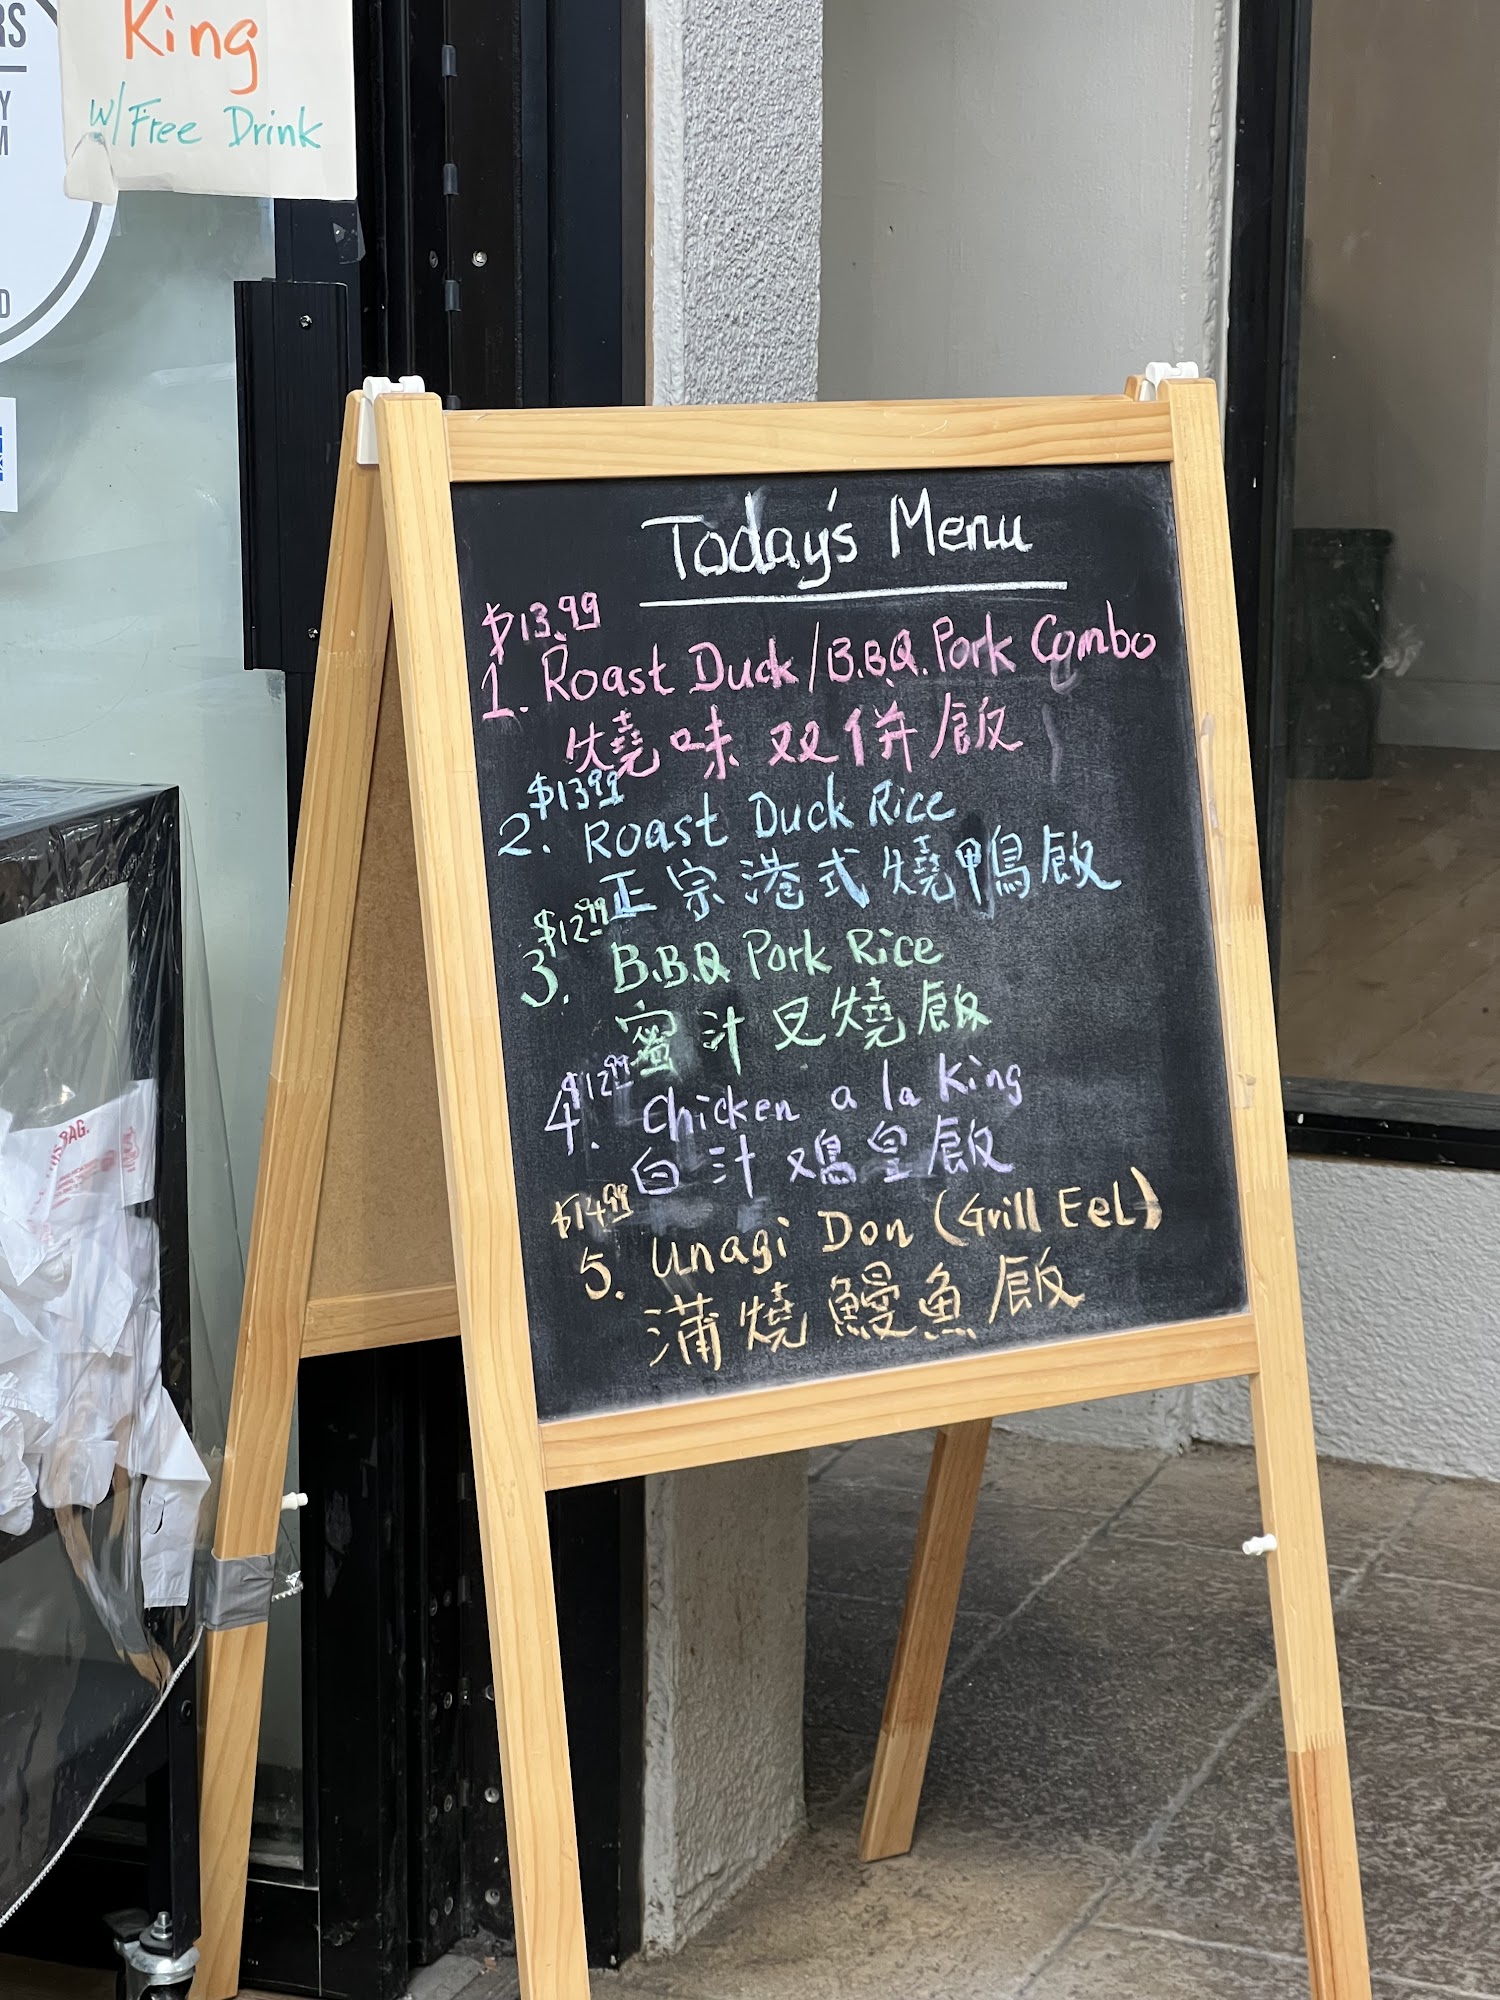 RS
Y
M
D
King
w/Free Drink
Today's Menu
$13.99
1. Roast Duck/B.B.Q. Pork Combo
燒味双併飯
$13.99
2. Roast Duck Rice
正宗港式燒鴨飯
$12.99
3. B.B.Q Pork Rice
蜜汁叉燒飯
$12.99
4. Chicken a la King
白汁鸡皇飯
$14.99
5. Unagi Don (Grill Eel)
蒲燒鰻魚飯
BAG.